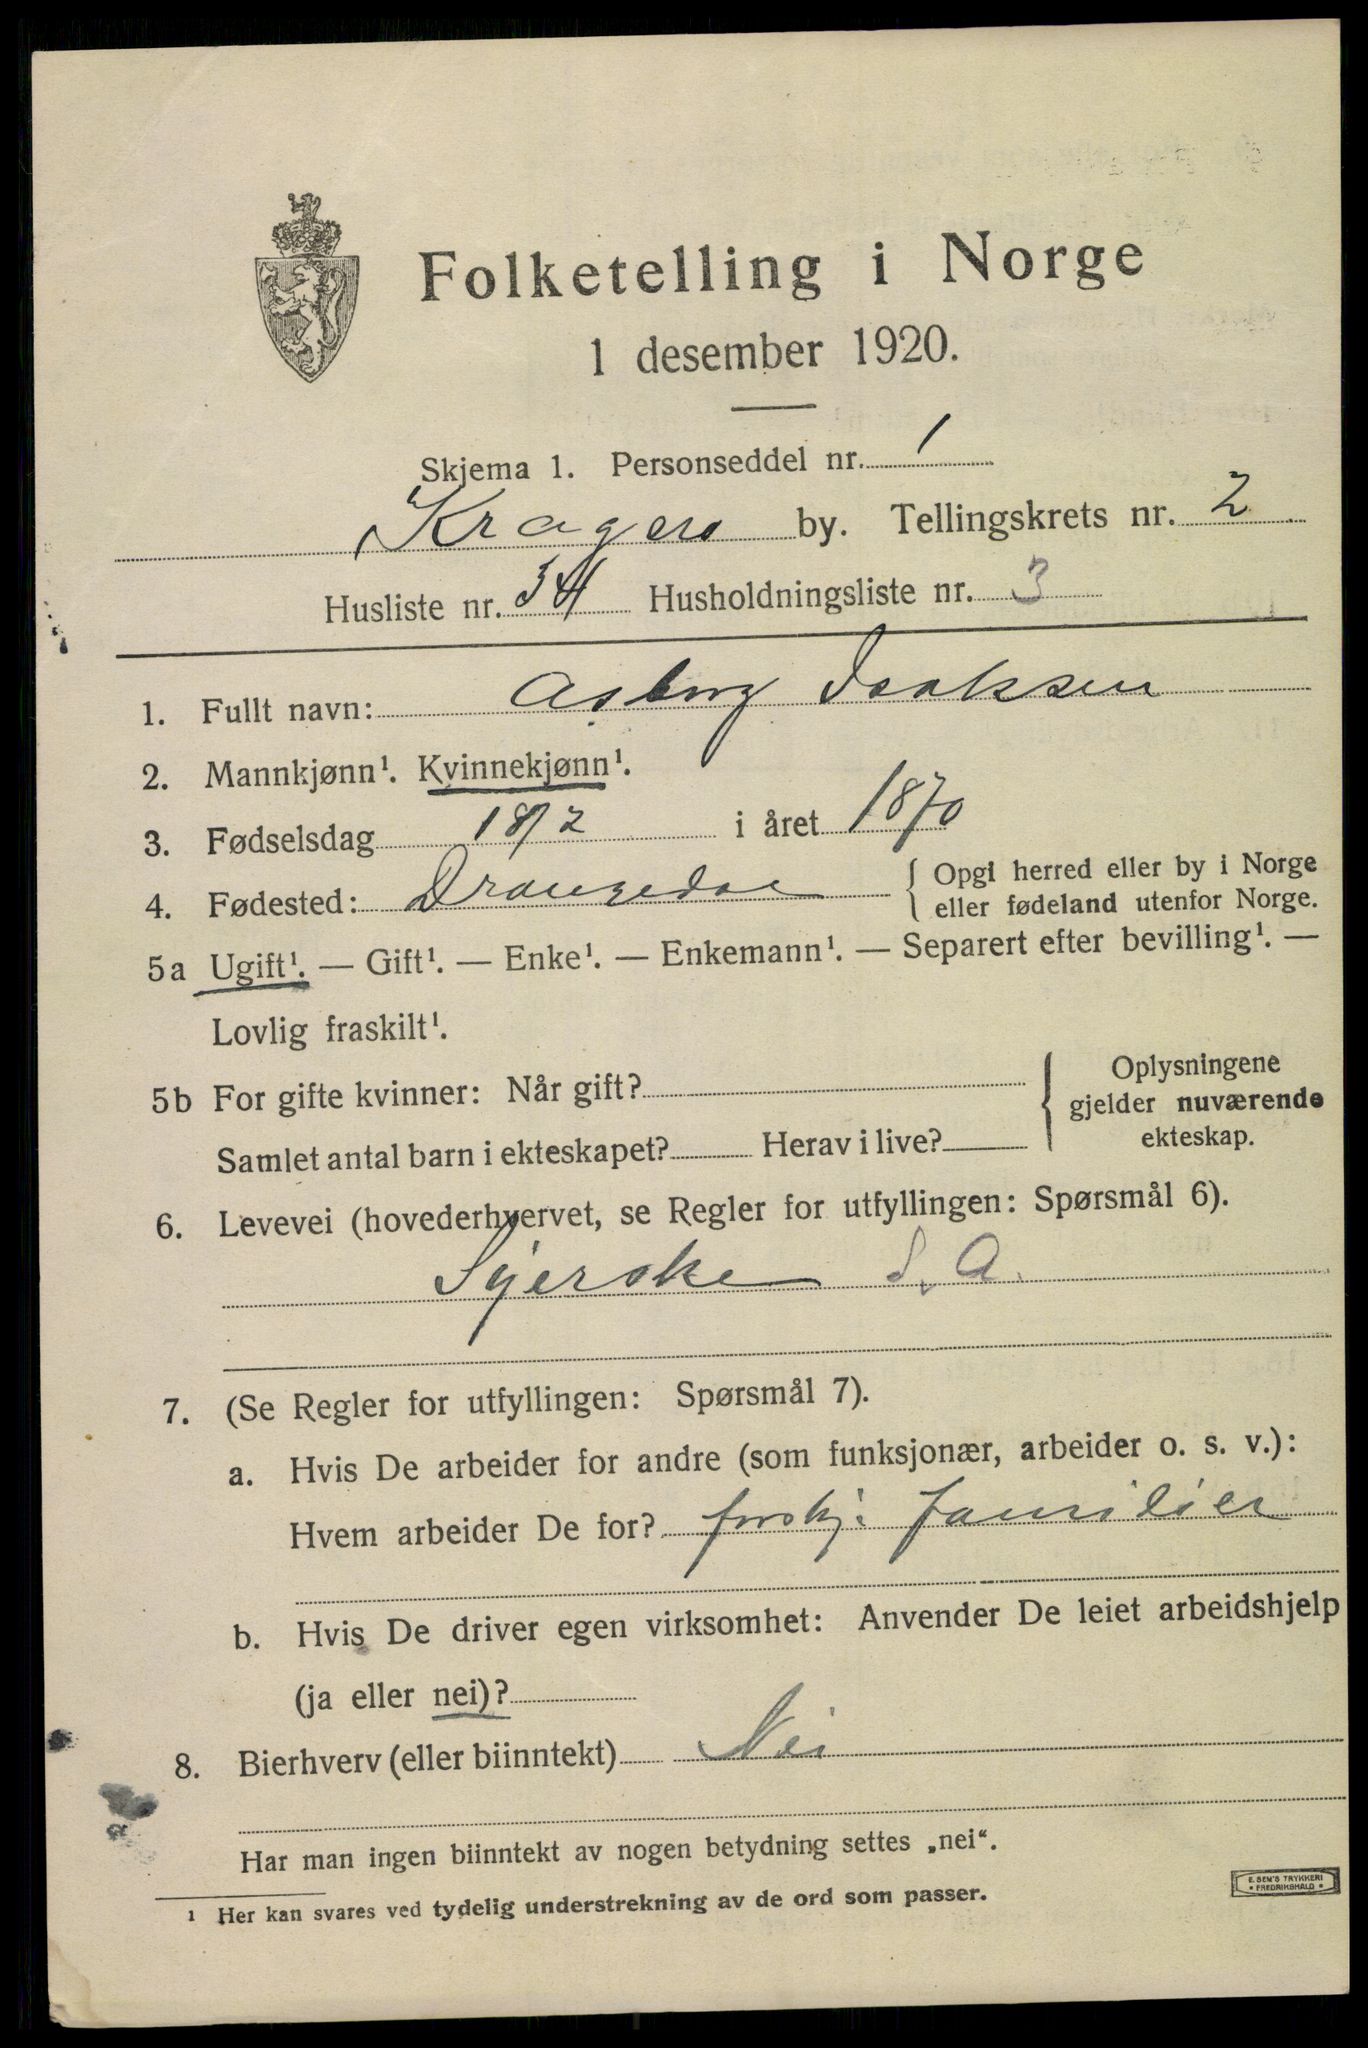 Folketelling i Norge
1 desember 1920.
Skjema 1. Personseddel nr. 1
Kragerø by. Tellingskrets nr. 2
Husliste nr. 34 Husholdningsliste nr. 3
1. Fullt navn: Asborg Isaksen
2. Mannkjønn¹. Kvinnekjønn¹.
3. Fødselsdag 18/2 i året 1870
4. Fødested: Drangedal { Opgi herred eller by i Norge
eller fødeland utenfor Norge.
5a Ugift¹. — Gift¹. — Enke¹. — Enkemann¹. — Separert efter bevilling¹. —
Lovlig fraskilt¹.
5b For gifte kvinner: Når gift?
Samlet antal barn i ekteskapet? Herav i live?
{ Oplysningene
gjelder nuværende
ekteskap.
6. Levevei (hovederhvervet, se Regler for utfyllingen: Spørsmål 6).
Syerske S. A.
7. (Se Regler for utfyllingen: Spørsmål 7).
a. Hvis De arbeider for andre (som funksjonær, arbeider o. s. v.):
Hvem arbeider De for? forskj. familier
b. Hvis De driver egen virksomhet: Anvender De leiet arbeidshjelp
(ja eller nei)?
8. Bierhverv (eller biinntekt) Nei
Har man ingen biinntekt av nogen betydning settes „nei“.
¹ Her kan svares ved tydelig understrekning av de ord som passer.
E. SEM'S TRYKKERI
• FREDRIKSHALD •